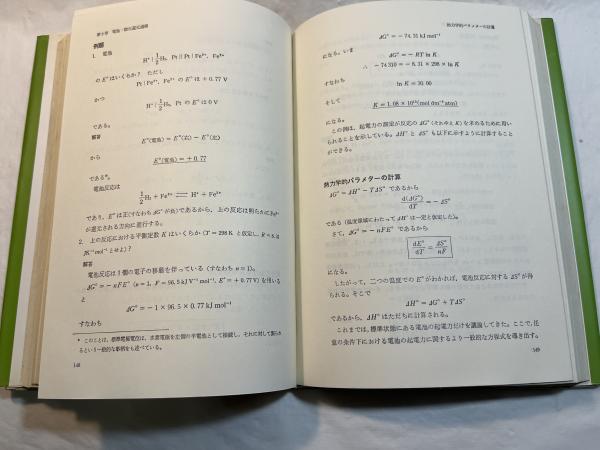 第9章 電池・酸化還元過程
例題
1. 電池
H⁺|½H₂, Pt || Pt | Fe³⁺, Fe²⁺
のE°はいくらか? ただし
Pt | Fe³⁺, Fe²⁺ のE°は +0.77 V
かつ
H⁺|½H₂, Pt のE°は0V
である。
解答
E°(電池) = E°(右) − E°(左)
から
E°(電池) = + 0.77
である*。
電池反応は
½H₂ + Fe³⁺ ⇌ H⁺ + Fe²⁺
であり、E°は正(すなわちΔG°が負)であるから、上の反応は明らかにFe³⁺
が還元される方向に進行する。
2. 上の反応における平衡定数Kはいくらか(T = 298 Kと仮定し、R = 8.31
JK⁻¹mol⁻¹とせよ)?
解答
電池反応は1個の電子の移動を伴っている(すなわちn = 1)。
ΔG° = −nFE° (n = 1, F = 96.5 kJ V⁻¹mol⁻¹, E° = + 0.77 V) を用いる
と
ΔG° = − 1 × 96.5 × 0.77 kJ mol⁻¹
すなわち
* このことは、標準電極電位は、水素電極を左側の半電池として接続し、それに対して測られ
るという一般的な事柄をも述べている。
148
熱力学的パラメーターの計算
ΔG° = − 74.31 kJ mol⁻¹
になる。いま
ΔG° = − RT ln K
∴ − 74 310 = − 8.31 × 298 × ln K
すなわち
ln K = 30.00
そして
K = 1.08 × 10¹³(mol dm⁻³atm)
になる。
この例は、起電力の測定が反応のΔG°(それゆえK)を求めるために用い
られることを示している。ΔH°とΔS°も以下に示すように計算すること
ができる。
熱力学的パラメターの計算
ΔG° = ΔH° − TΔS° であるから
d(ΔG°)/dT = − ΔS°
である(温度領域にわたってΔH°は一定と仮定した)。
さて、ΔG° = − nFE° であるから
dE°/dT = ΔS°/nF
になる。
したがって、二つの温度でのE°がわかれば、電池反応に対するΔS°が得
られる。そこで
ΔH° = ΔG° + TΔS°
であるから、ΔH°はただちに計算される。
これまでは、標準状態にある電池の起電力だけを議論してきた。ここで、任
意の条件下における電池の起電力に関するより一般的な方程式を導き出す。
149